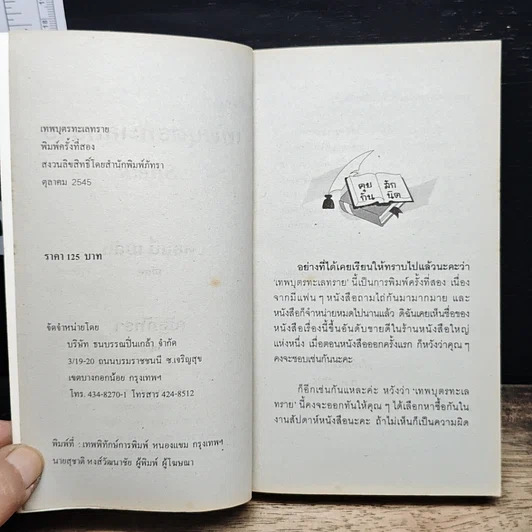 เทพบุตรทะเลทราย
พิมพ์ครั้งที่สอง
สงวนลิขสิทธิ์โดยสำนักพิมพ์ภัทรา
ตุลาคม 2545
ราคา 125 บาท
จัดจำหน่ายโดย
บริษัท ธนบรรณปิ่นเกล้า จำกัด
3/19-20 ถนนบรมราชชนนี ซ.เจริญสุข
เขตบางกอกน้อย กรุงเทพฯ
โทร. 434-8270-1 โทรสาร 424-8512
พิมพ์ที่ : เทพพิทักษ์การพิมพ์ หนองแขม กรุงเทพฯ
นายสุชาติ หงส์วัฒนาชัย ผู้พิมพ์ ผู้โฆษณา
คุย สัก
กัน นิด
อย่างที่ได้เคยเรียนให้ทราบไปแล้วนะคะว่า
'เทพบุตรทะเลทราย' นี้เป็นการพิมพ์ครั้งที่สอง เนื่อง
จากมีแฟน ๆ หนังสือถามไถ่กันมามากมาย และ
หนังสือก็จำหน่ายหมดไปนานแล้ว ดิฉันเคยเห็นชื่อของ
หนังสือเรื่องนี้ขึ้นอันดับขายดีในร้านหนังสือใหญ่
แห่งหนึ่ง เมื่อตอนหนังสือออกครั้งแรก ก็หวังว่าคุณ ๆ
คงจะชอบเช่นกันนะคะ
ก็อีกเช่นกันแหละค่ะ หวังว่า 'เทพบุตรทะเล
ทราย' นี้คงจะออกทันให้คุณ ๆ ได้เลือกหาซื้อกันใน
งานสัปดาห์หนังสือนะคะ ถ้าไม่เห็นก็เป็นความผิด